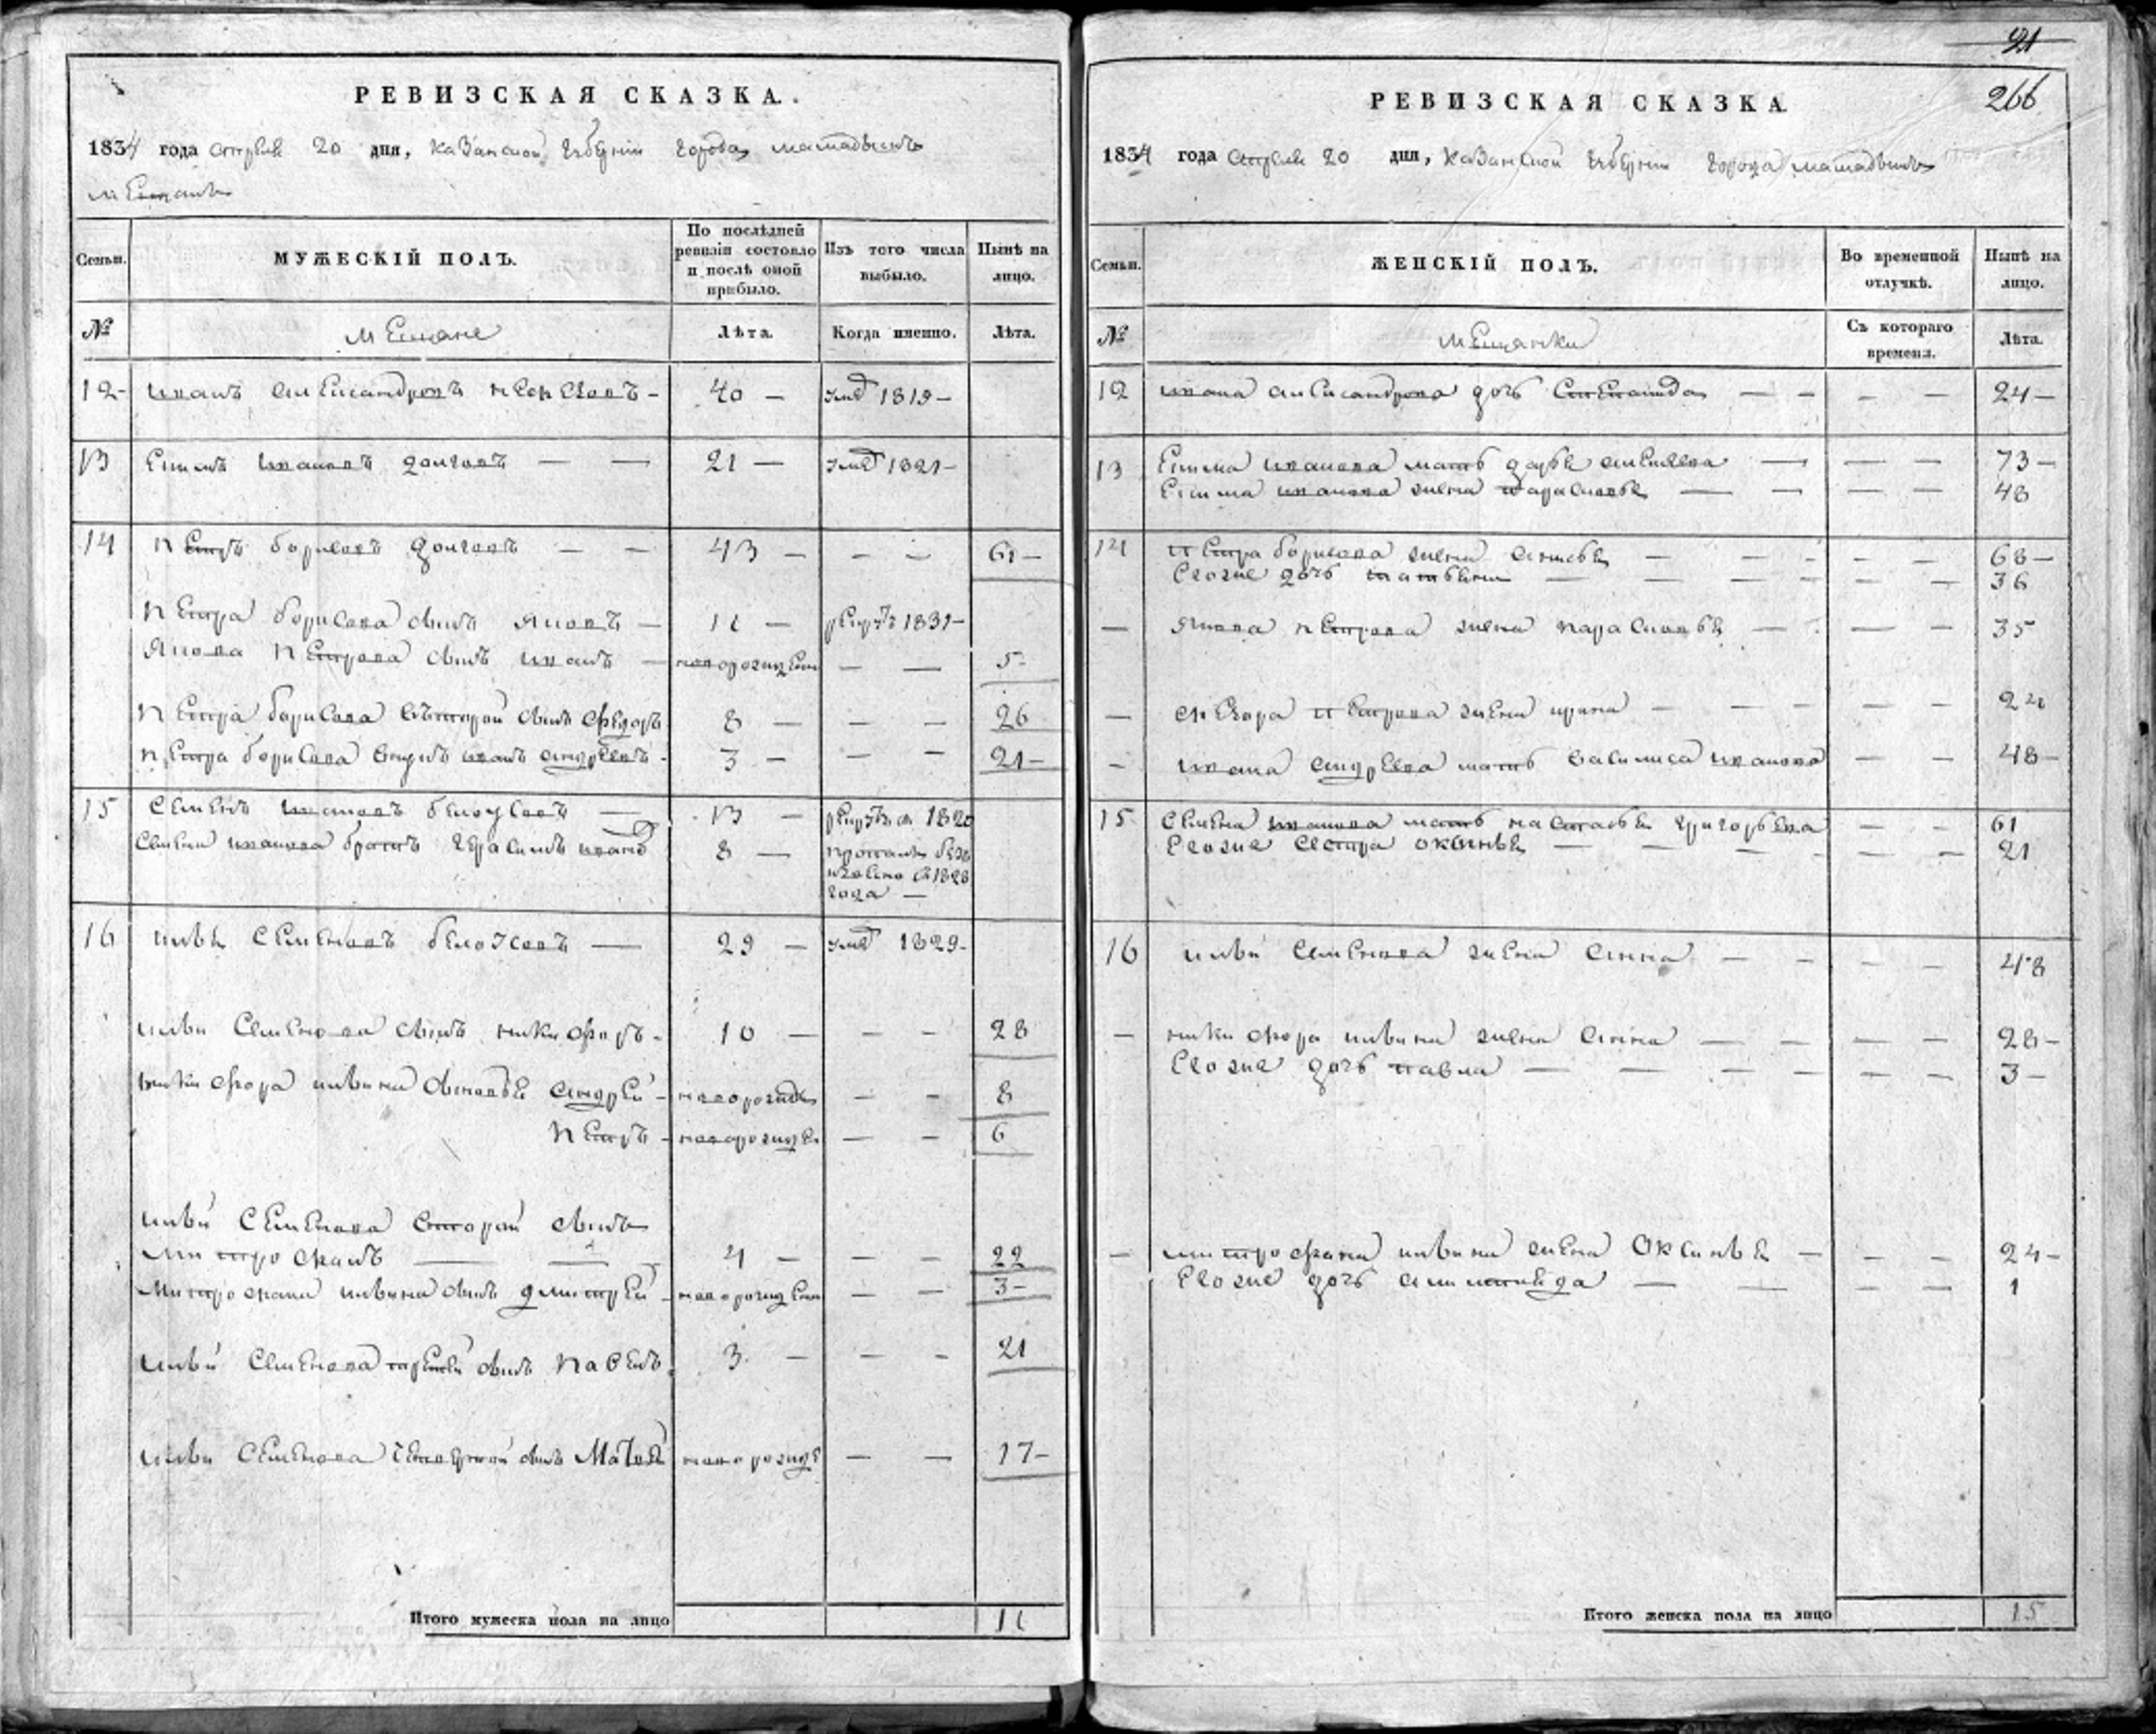 РЕВИЗСКАЯ СКАЗКА.
1834 года апреля 20 дня, Казанской губернии города мамадыша
мещанъ
Семьи.
МУЖЕСКІЙ ПОЛЪ.
По послѣдней ревизіи состояло и послѣ оной прибыло.
Изъ того числа выбыло.
Нынѣ на лицо.
№
мещане
Лѣта.
Когда именно.
Лѣта.
12 иванъ александровъ 40 — умѣ 1819 —
13 ефимъ ивановъ долговъ — — 21 — умѣ 1821 —
14 петръ борисовъ долговъ — — 43 — — — 61 —
петра борисова сынъ яковъ — 11 — рекрутъ 1831 —
якова петрова сынъ иванъ — новорожден — — 5
петра борисова второй сынъ федоръ 8 — — — 26
петра борисова внукъ иванъ андреевъ 3 — — — 21 —
15 семенъ ивановъ белоусовъ — 13 — рекрутъ в 1820
семена иванова братъ герасимъ ивановъ 8 — пропалъ без
известно с 1828
года —
16 илья семеновъ белоусовъ — 29 — умѣ 1829 —
ильи семенова сынъ никифоръ — 10 — — — 28
никифора ильина сыновья андрей — новорожден — — 8
петръ — новорожде — — 6
ильи семенова второй сынъ
митрофанъ — — 4 — — — 22
митрофана ильина сынъ дмитрей — новорожден — — 3 —
ильи семенова третей сынъ 3 — — — 21
ильи семенова четвертой сынъ матвей новорожде — — 17 —
Итого мужеска пола на лицо 11
21
266
РЕВИЗСКАЯ СКАЗКА
1834 года апреля 20 дня, Казанской губернии города мамадыша
Семьи.
ЖЕНСКІЙ ПОЛЪ.
Во временной отлучкѣ.
Нынѣ на лицо.
№
мещанки
Съ котораго времени.
Лѣта.
12 ивана александрова дочь степанида — — — — 24 —
13 ефима иванова мать дарья алексеева — — — 73 —
ефима иванова жена парасковья — — — — 48
14 петра борисова жена — — — — — 68 —
евоже дочь татьяна — — — — — 36
— якова петрова жена парасковья — — — — 35
— федора петрова жена ирина — — — — — 24
— ивана андреева мать василиса иванова — — 48 —
15 семена иванова мать настасья григорьева — — 61
евоже сестра оксинья — — — — — 21
16 ильи семенова жена анна — — — — 48
— никифора ильина жена анна — — — — 28 —
евоже дочь павла — — — — — — 3 —
— митрофана ильина жена оксинья — — — 24 —
евоже дочь — — — — 1
Итого женска пола на лицо 15